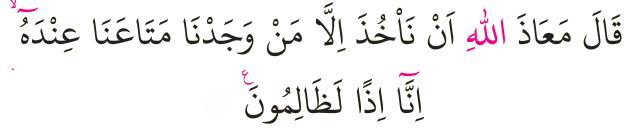 قَالَ مَعَاذَ اللّٰهِ اَنْ نَاْخُذَ اِلَّا مَنْ وَجَدْنَا مَتَاعَنَا عِنْدَهُٓۙ
اِنَّٓا اِذًا لَظَالِمُونَ۟ع